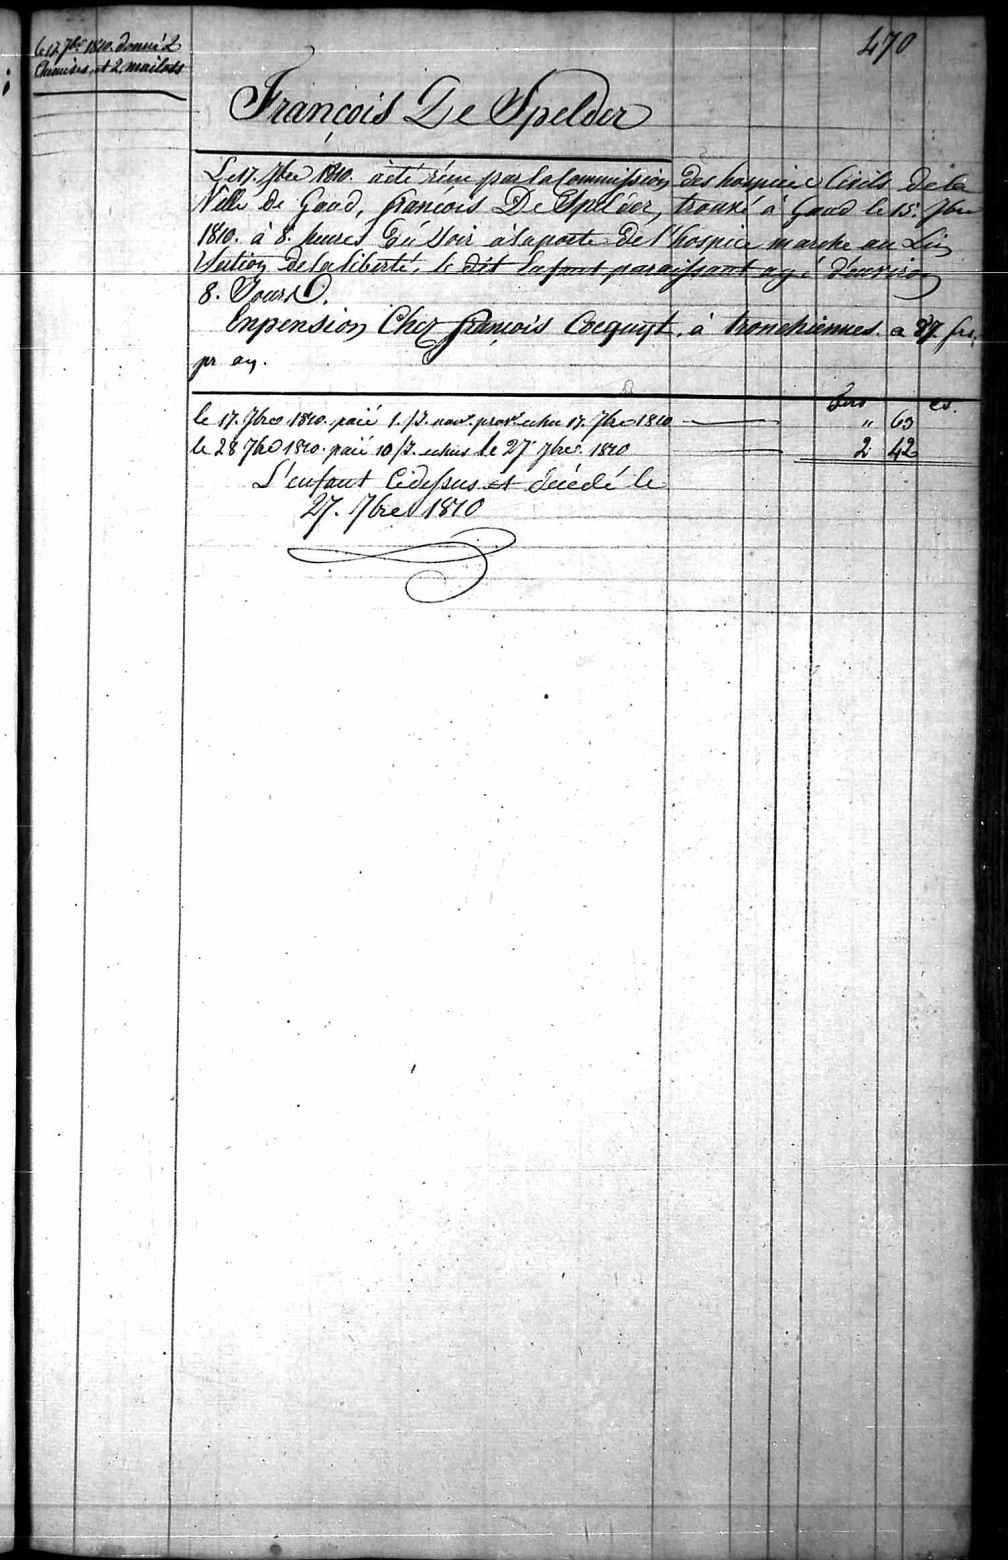 le 17. 7bre 1810. donné 2
Chemises et 2. mailots
470
François De Spelder
Le 17. 7bre 1810. à été réçu par la Commission des hospices Civils de la
Ville de Gand, françois De Spelder, trouvé à Gand le 15. 7bre
1810. à 8. heures du Soir à la porte de l'hospice marche au Lin
Section de la liberté, le dit Enfant paraissant agé d'environ
8. Jours.
Enpension Chez françois Cocquyt, à tronchiennes a 87. frs,
pr an.
le 17. 7bre 1810. paié 1. echu 17. 7bre 1810 " 63
le 28 7bre 1810. paié 10 echus le 27 7bre 1810 2 42
L'enfant Cidessus est décédé le
27. 7bre 1810